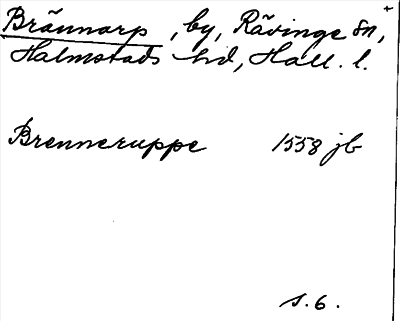 Brännarp, by, Rävinge sn,
Halmstads hd, Hall. l.
Brenneruppe 1558 jb
s. 6.